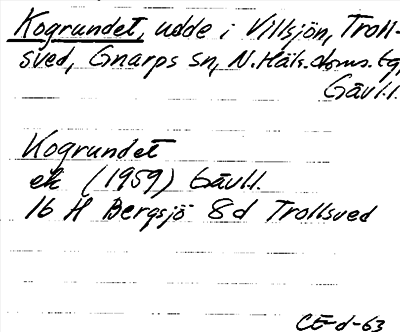 Kogrundet, udde i Villsjön, Troll-
sved, Gnarps sn, N. Häls. doms. tg,
Gävl.l.
Kogrundet
ek (1959) Gävl.l.
16 H Bergsjö 8d Trollsved
CE-d-63